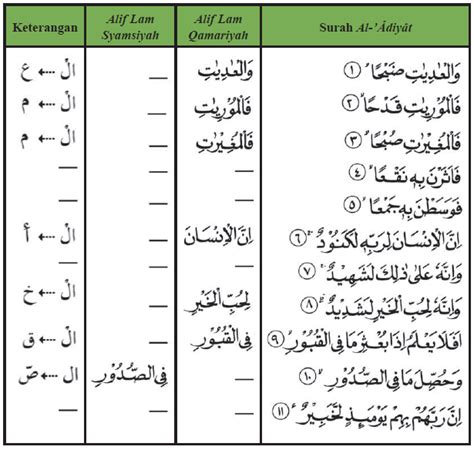 Keterangan	Alif Lam Syamsiyah	Alif Lam Qamariyah	Surah Al-'Ādiyāt
الْ ⇠ ع	—	وَالْعٰدِيٰتِ	وَالْعٰدِيٰتِ ضَبْحًاۙ ①
الْ ⇠ م	—	فَالْمُوْرِيٰتِ	فَالْمُوْرِيٰتِ قَدْحًاۙ ②
الْ ⇠ م	—	فَالْمُغِيْرٰتِ	فَالْمُغِيْرٰتِ صُبْحًاۙ ③
—	—	—	فَاَثَرْنَ بِهٖ نَقْعًاۙ ④
—	—	—	فَوَسَطْنَ بِهٖ جَمْعًاۙ ⑤
الْ ⇠ أ	—	اِنَّ الْاِنْسَانَ	اِنَّ الْاِنْسَانَ لِرَبِّهٖ لَكَنُوْدٌۚ ⑥
—	—	—	وَاِنَّهٗ عَلٰى ذٰلِكَ لَشَهِيْدٌۚ ⑦
الْ ⇠ خ	—	لِحُبِّ الْخَيْرِ	وَاِنَّهٗ لِحُبِّ الْخَيْرِ لَشَدِيْدٌۗ ⑧
الْ ⇠ ق	—	فِى الْقُبُوْرِ	اَفَلَا يَعْلَمُ اِذَا بُعْثِرَ مَا فِى الْقُبُوْرِۙ ⑨
ال ⇠ صّ	فِى الصُّدُوْرِ	—	وَحُصِّلَ مَا فِى الصُّدُوْرِۙ ⑩
—	—	—	اِنَّ رَبَّهُمْ بِهِمْ يَوْمَىِٕذٍ لَّخَبِيْرٌ ⑪